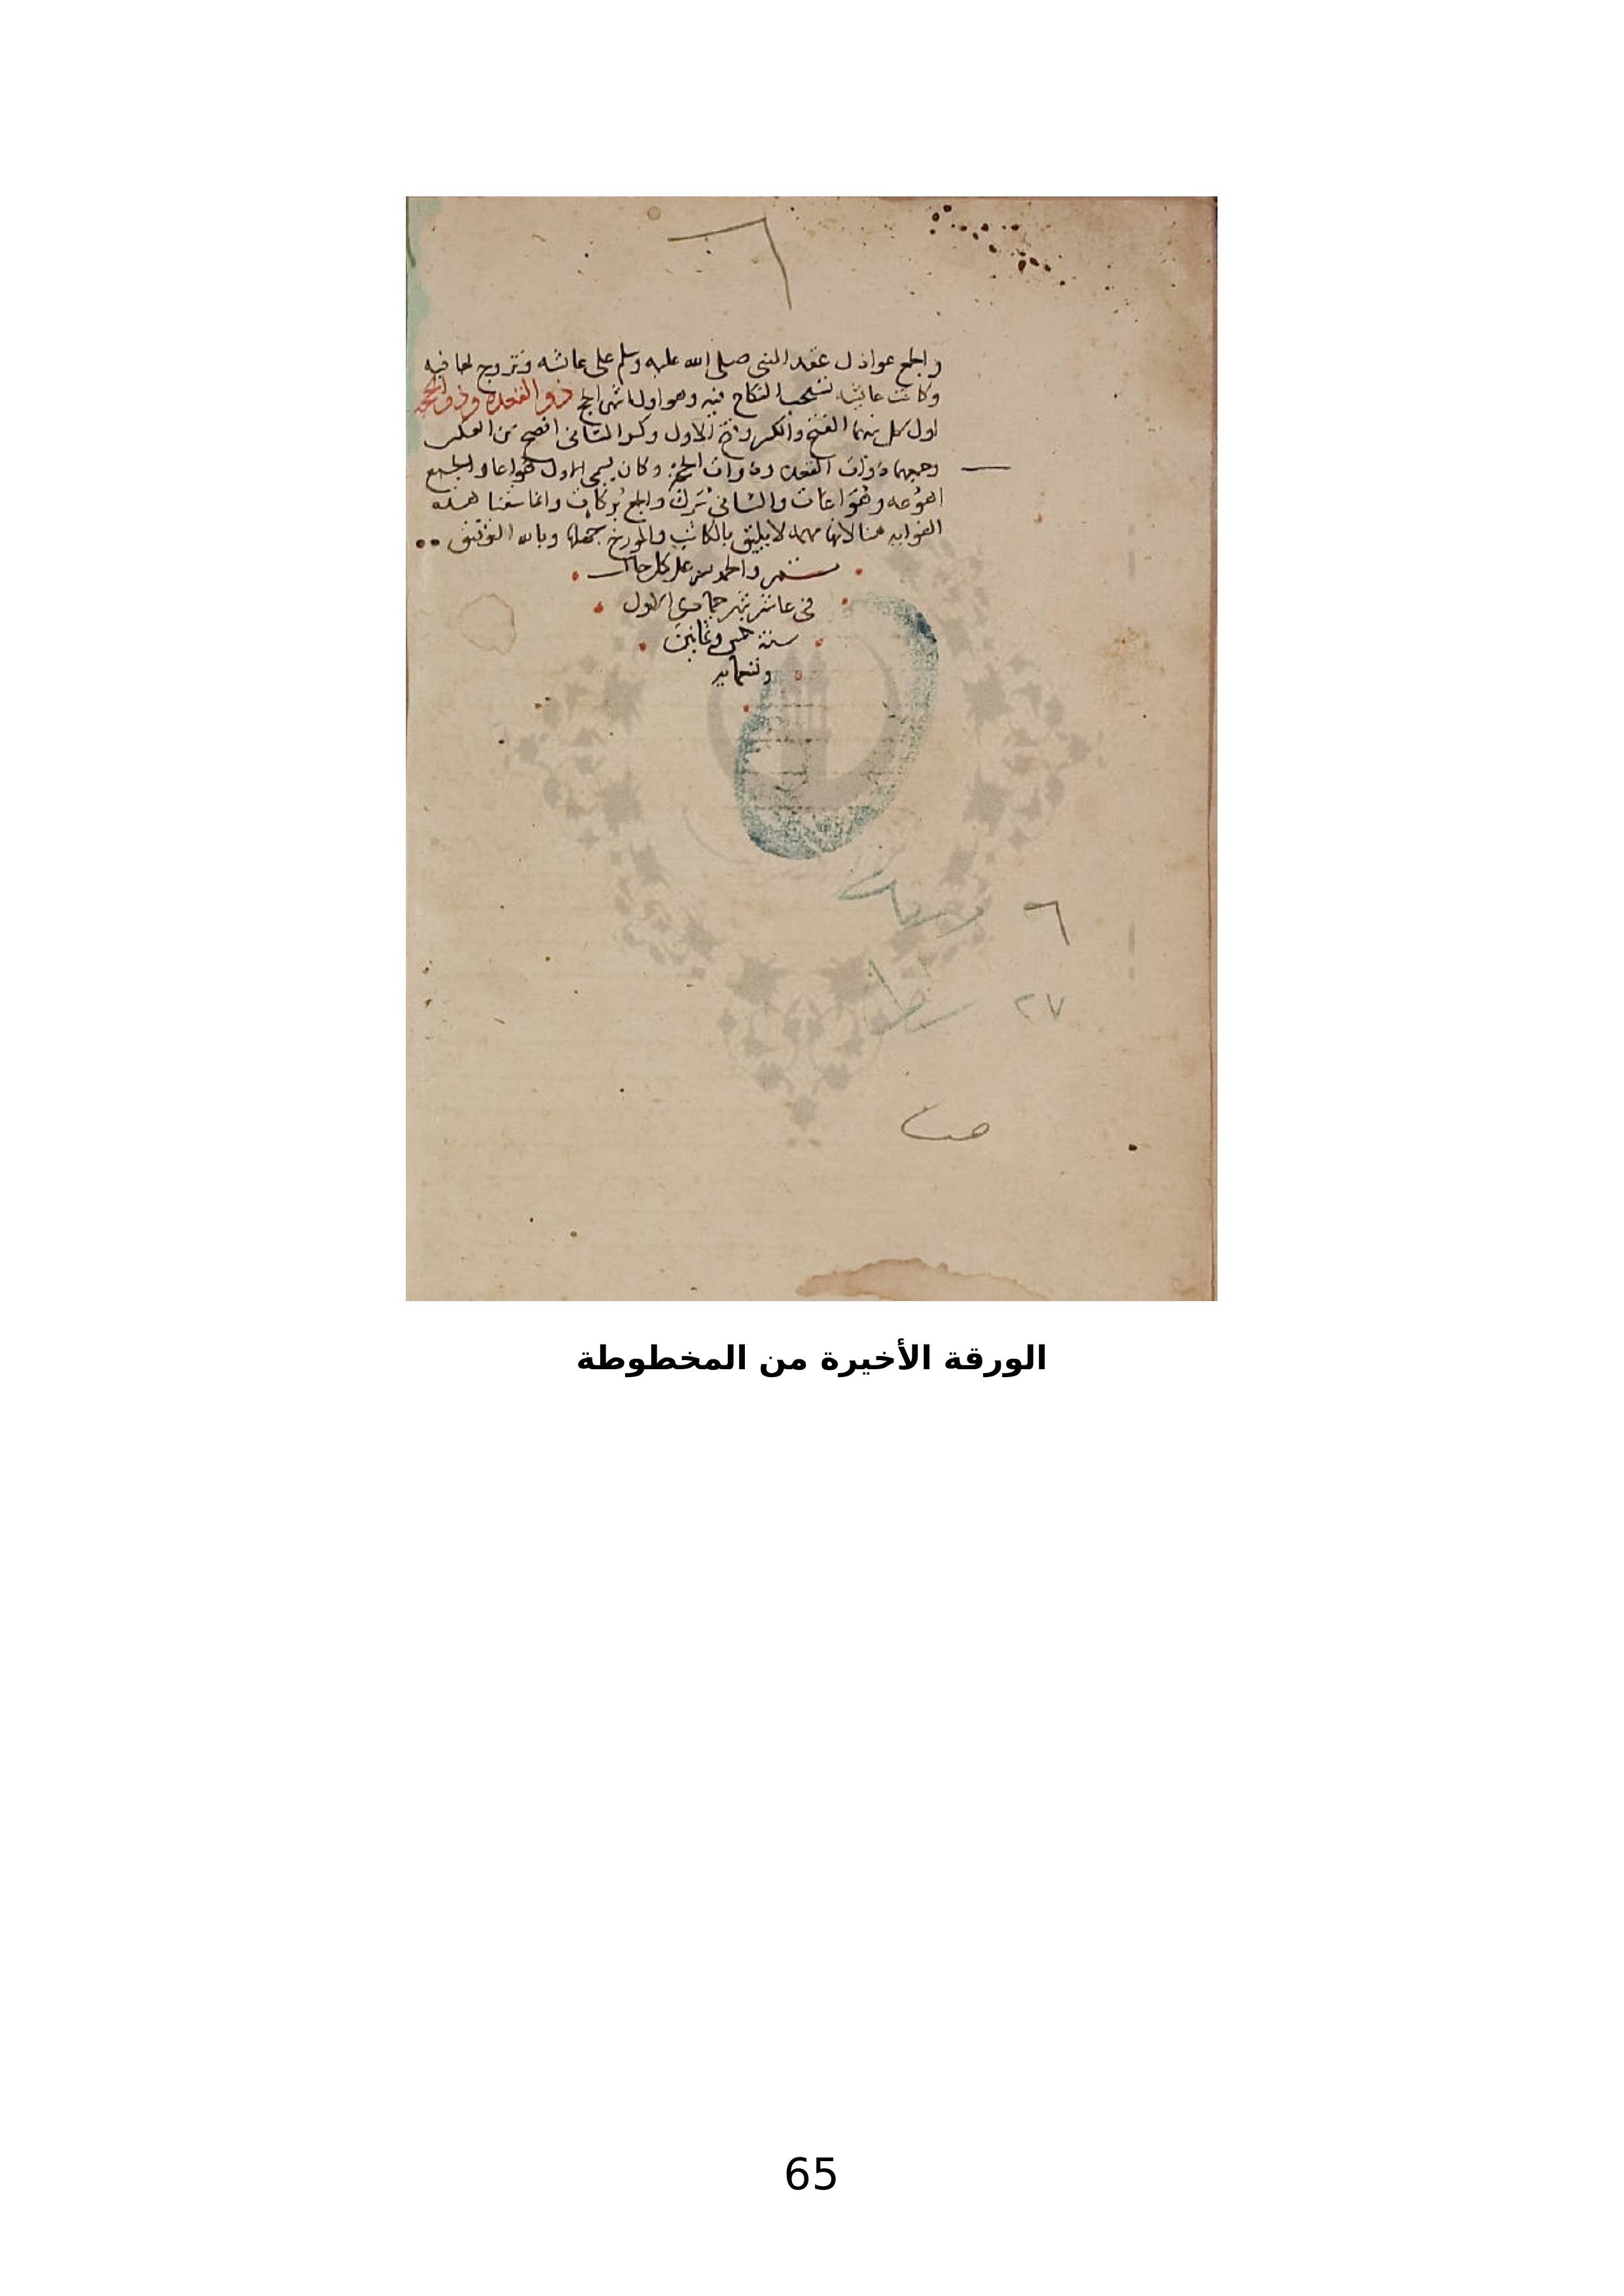 ٦
والجمع عواذل عقد النبي صلى الله عليه وسلم على عائشه وتزوج لها فيه
وكانت عائشه تستحب النكاح فيه وهو اول اشهر الحج ذو القعده وذو الحجه
اول كل منهما الفتح والكسر وفتح الاول وكسر الثاني افصح من العكس
وجمعهما ذوات القعده وذوات الحجة وكان يسمى الاول هواعا والجمع
اهوعه وهواعات والثاني برك والجمع بركات وانما سقنا هذه
الفوايد هنا لانها مهمه لا يليق بالكاتب والمورخ جهلها وبالله التوفيق
والحمد لله على كل حال
في عاشر شهر جمادي الاول
سنة خمس وثمانين
٦
٢٧
الورقة الأخيرة من المخطوطة
65